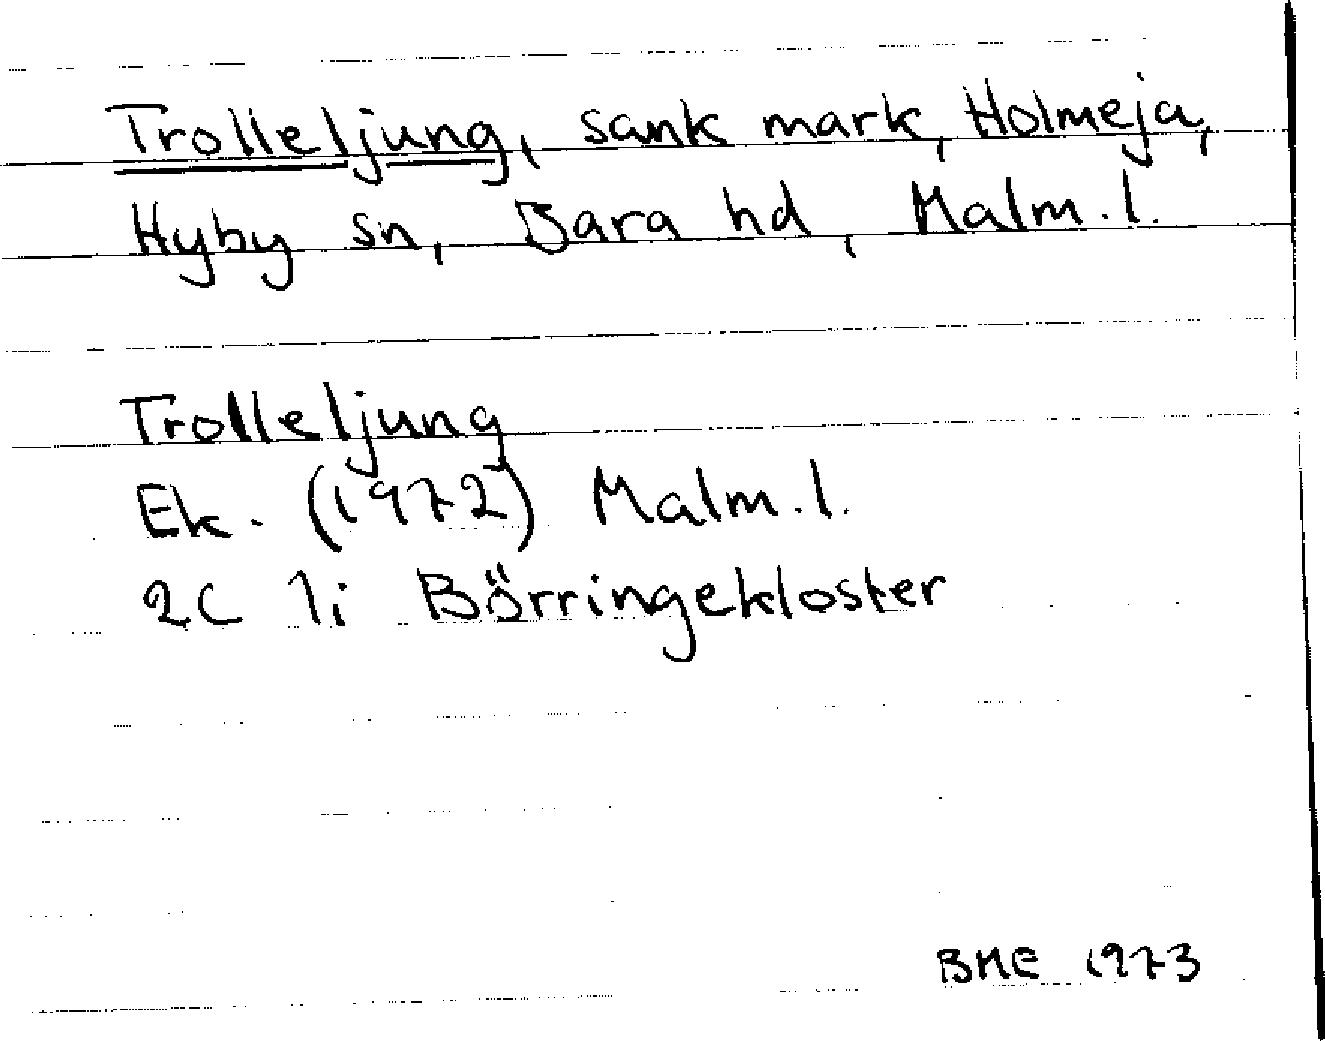 Trolleljung, sank mark, Holmeja,
Hyby sn, Bara hd, Malm.l.
Trolleljung
Ek. (1972) Malm.l.
2C 1i Börringekloster
BME 1973